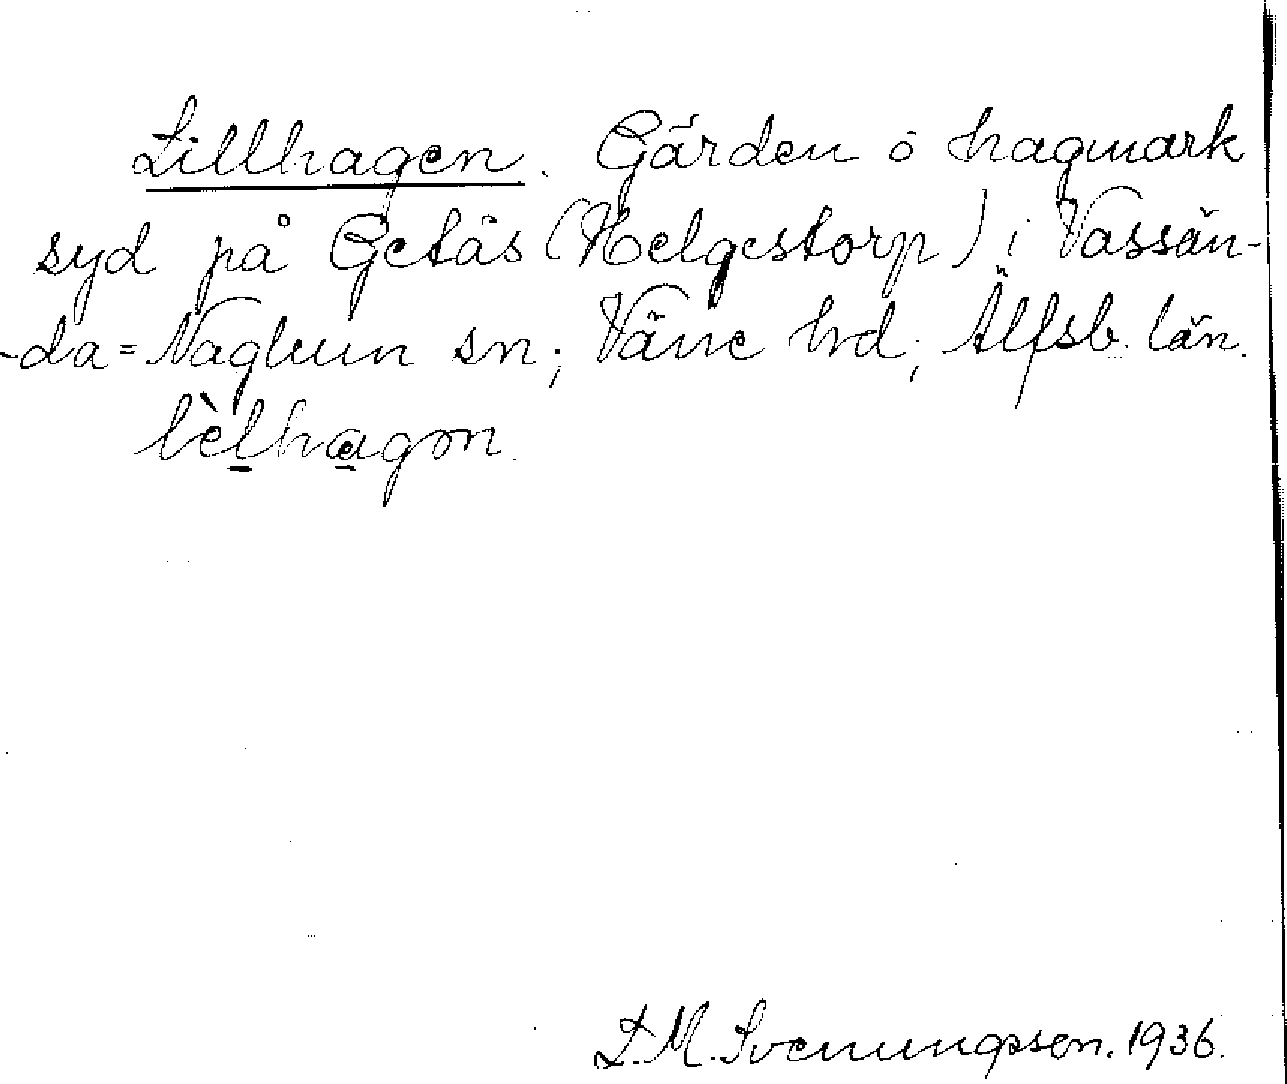 Lillhagen. Gärden o hagmark
syd på Getås (Helgestorp) i Vassän-
-da=Naglum sn; Väne hrd; Älfsb. län.
lèlhagən.
D.M. Svenungsson. 1936.